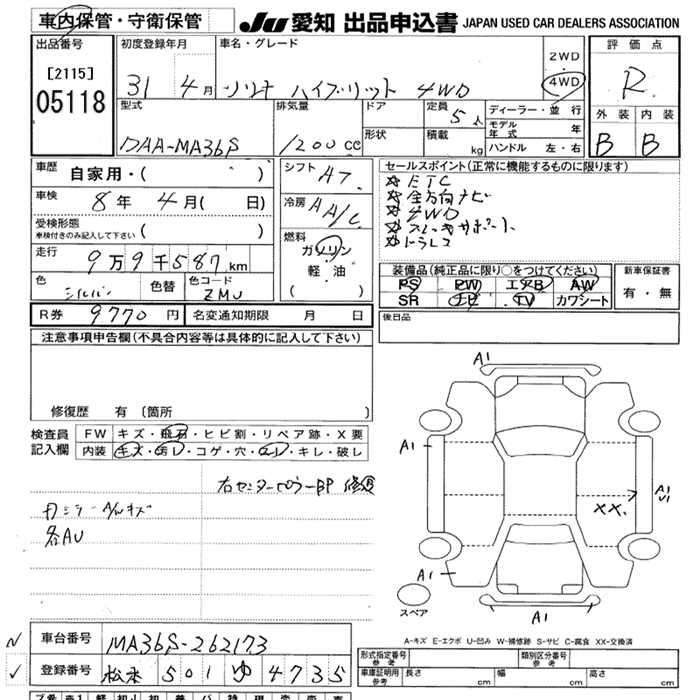 車内保管・守衛保管
JU 愛知 出品申込書 JAPAN USED CAR DEALERS ASSOCIATION
出品番号
[2115]
05118
初度登録年月
31 4月
車名・グレード
ソリオ ハイブリット 4WD
2WD
4WD
評価点
R
外装 内装
B B
型式
DAA-MA36S
排気量
1200cc
ドア
形状
定員 5人
積載 kg
ディーラー・並行
モデル年式 年
ハンドル 左・右
車歴
自家用・( )
車検
8年 4月( 日)
受検形態
車検付きのみ記入して下さい ( )
走行
9万9千587km
色
シルバー
色替
色コード
ZMU
シフト AT
冷房 AA/C
燃料
ガソリン
軽油
( )
セールスポイント(正常に機能するものに限ります)
☆ ETC
☆ 全方向ナビ
☆ 4WD
☆ ブレーキサポート
装備品(純正品に限り○をつけてください)
PS PW エアB AW
SR ナビ TV カワシート
新車保証書
有・無
R券 9770円
名変通知期限 月 日
後日品
注意事項申告欄(不具合内容等は具体的に記入して下さい)
修復歴 有 [箇所 ]
検査員記入欄
FW キズ・飛石・ヒビ割・リペア跡・X要
内装 キズ・汚レ・コゲ・穴・スレ・キレ・破レ
右センターピラーBP 修復
各AU
A1
A1
A1
A1
A1
U1
XX.
スペア
A-キズ E-エクボ U-凹み W-補修跡 S-サビ C-腐食 XX-交換済
車台番号
MA36S-262173
登録番号
松本 501 ゆ 4735
形式指定番号
参考
類別区分番号
参考
車庫証明用
参考
長さ cm
幅 cm
高さ cm